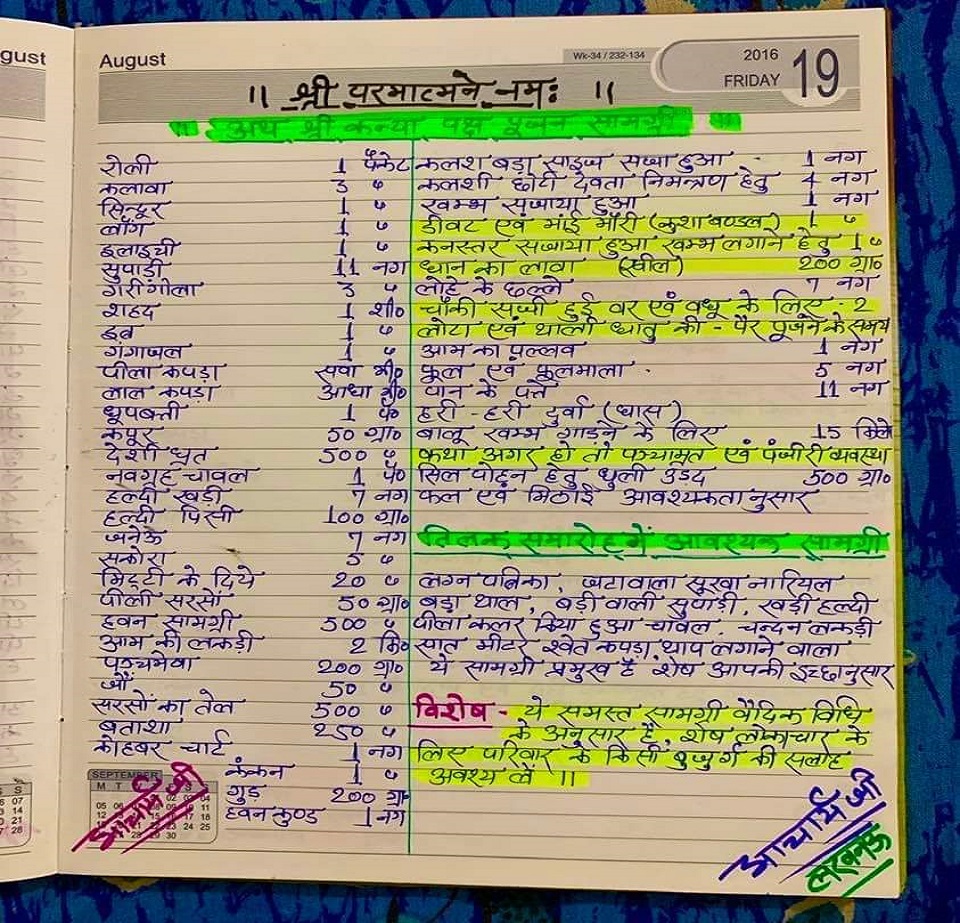 gust
August
Wk-34 / 232-134
2016
FRIDAY
19
॥ श्री परमात्मने नमः ॥
॥ अथ श्री कन्या पक्ष पूजन सामग्री ॥
रोली 1 पैकेट
कलावा 3 "
सिन्दूर 1 "
लौंग 1 "
इलाइची 1 "
सुपाड़ी 11 नग
गरी गोला 3 "
शहद 1 शी०
इत्र 1 "
गंगाजल 1 "
पीला कपड़ा सवा मी०
लाल कपड़ा आधा मी०
धूपबत्ती 1 पै०
कपूर 50 ग्रा०
देशी घृत 500 "
नवग्रह चावल 1 पै०
हल्दी खड़ी 7 नग
हल्दी पिसी 100 ग्रा०
जनेऊ 7 नग
सकोरा 5 "
मिट्टी के दिये 20 "
पीली सरसों 50 ग्रा०
हवन सामग्री 500 "
आम की लकड़ी 2 कि०
पञ्चमेवा 200 ग्रा०
जौ 50 "
सरसों का तेल 500 "
बताशा 250 "
कोहबर चार्ट 1 नग
कंकन 1 "
गुड़ 200 ग्रा०
हवन कुण्ड 1 नग
कलश बड़ा साइज सजा हुआ - 1 नग
कलशी छोटी देवता निमन्त्रण हेतु 4 नग
खम्भ सजाया हुआ 1 नग
डीवट एवं माई मौरी (कुशा बण्डल) 1 "
कनस्तर सजाया हुआ खम्भ लगाने हेतु 1 "
धान का लावा (खील) 200 ग्रा०
लोहे के छल्ले 7 नग
चौकी सजी हुई वर एवं वधू के लिए - 2
लोटा एवं थाली धातु की - पैर पूजने के समय
आम का पल्लव 1 नग
फूल एवं फूलमाला - 5 नग
पान के पत्ते 11 नग
हरी - हरी दुर्वा (घास)
बालू खम्भ गाड़ने के लिए 15 किलो
कथा अगर हो तो पञ्चामृत एवं पंजीरी व्यवस्था
सिल पोहन हेतु धुली उड़द 500 ग्रा०
फल एवं मिठाई आवश्यकतानुसार
तिलक समारोह में आवश्यक सामग्री
लग्न पत्रिका, जटावाला सूखा नारियल
बड़ा थाल, बड़ी वाली सुपाड़ी, खड़ी हल्दी
पीला कलर किया हुआ चावल, चन्दन लकड़ी
सात मीटर श्वेत कपड़ा थाप लगाने वाला
ये सामग्री प्रमुख है शेष आपकी इच्छानुसार
विशेष - ये समस्त सामग्री वैदिक विधि
के अनुसार है, शेष लोकाचार के
लिए परिवार के किसी बुजुर्ग की सलाह
अवश्य लें ॥
SEPTEMBER
आचार्य जी
आचार्य जी
लखनऊ